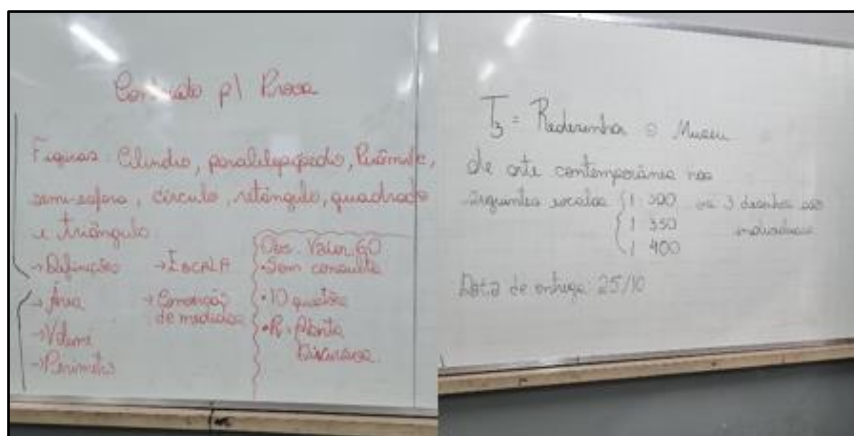 Conteúdo p/ Prova
Figuras: Cilindro, paralelepípedo, Pirâmide,
semi-esfera, círculo, retângulo, quadrado
e triângulo.
→Definições →ESCALA
→Área →Conversão
→Volume de medidas
→Perímetro
Obs. Valor: 60
•Sem consulta
•10 questões
•R: Aberta
Discursiva
T3 = Redesenhar o Museu
de arte contemporânea nas
seguintes escalas 1:300 os 3 desenhos são
1:350 individuais
1:400
Data de entrega 25/10